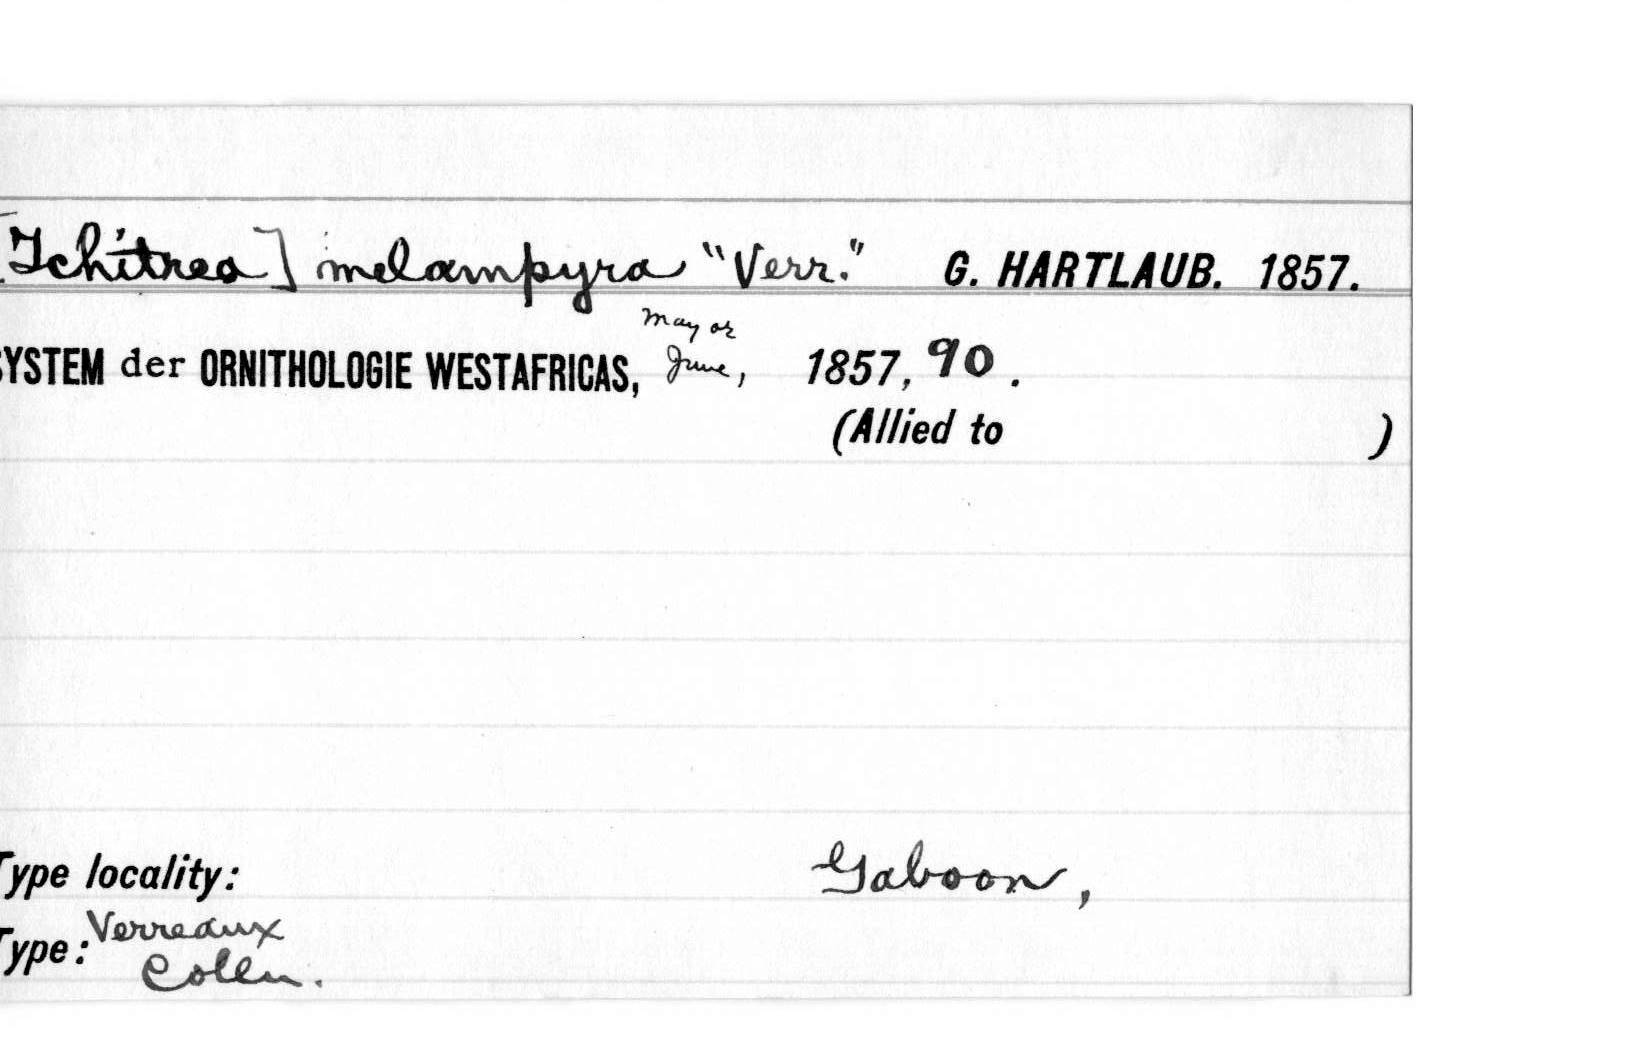 [Tchitrea] melampyra "Verr." G. HARTLAUB. 1857.
May or
SYSTEM der ORNITHOLOGIE WESTAFRICAS, June, 1857, 90.
(Allied to )
Type locality: Gaboon,
Type: Verreaux
Colln.